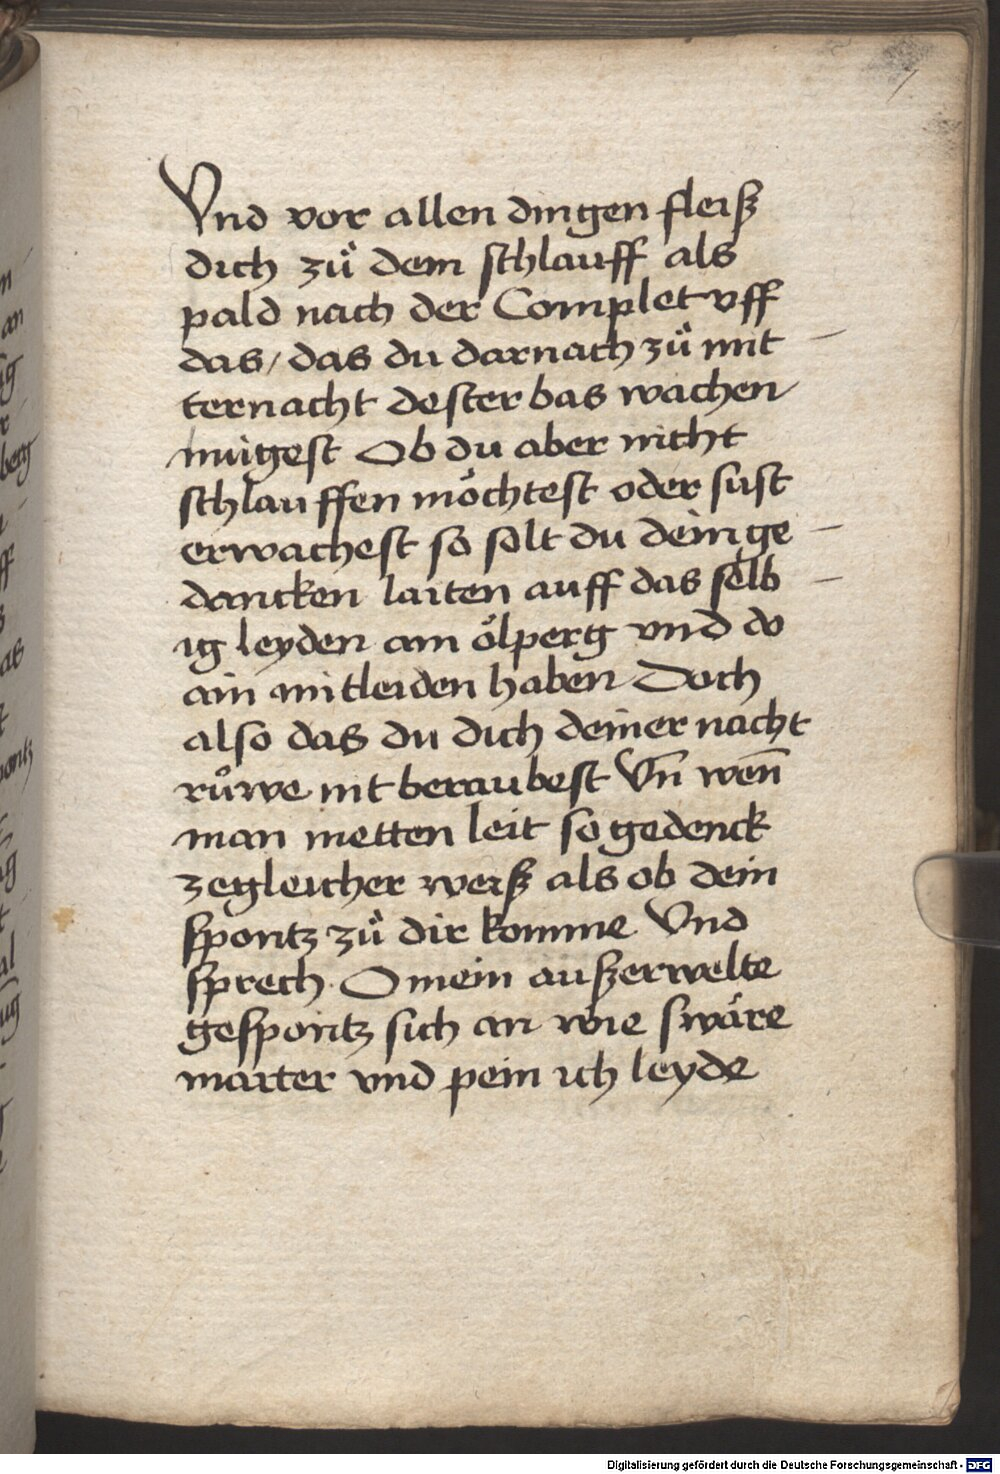 7
Vnd vor allen dingen fleisz
dich zů dem schlauff als
pald nach der Complet vff
das / das du darnach zů mit –
ternacht dester bas wachen
mügest Ob du aber nicht
schlauffen möchtest oder sust
erwachest so solt du dein ge –
dancken laiten auff das selb –
ig leyden am ölperg vnd do
ain mitleiden haben Doch
also das du dich deiner nacht
růwe nit beraubest Vn̄ wen̄
man metten leit so gedenck
zegleicher weisz als ob dein
spontz zů dir komme Vnd
sprech. O mein auszerwelte
gespontz sich an wie swäre
marter vnd pein ich leyde
Digitalisierung gefördert durch die Deutsche Forschungsgemeinschaft - DFG